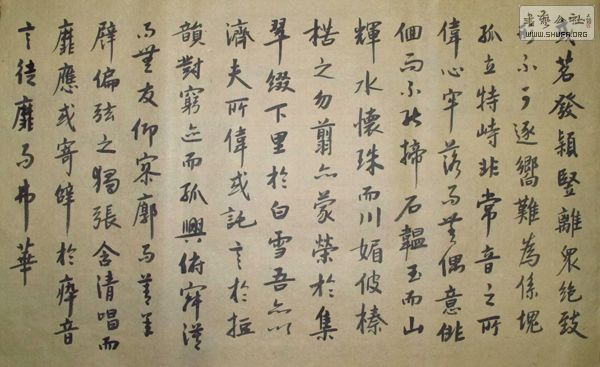 或苕發穎豎離眾絕致
形不可逐嚮難為係塊
孤立特峙非常音之所
偉心牢落而無偶意俳
佪而不能揥石韞玉而山
輝水懷珠而川媚彼榛
楛之勿翦亦蒙榮於集
翠綴下里於白雪吾亦以
濟夫所偉或託言於短
韻對窮迹而孤興俯寂漠
而無友仰寥廓而莫承
譬偏弦之獨張含清唱而
靡應或寄辭於瘁音
言徒靡而弗華
书艺公社
WWW.SHUFA.ORG